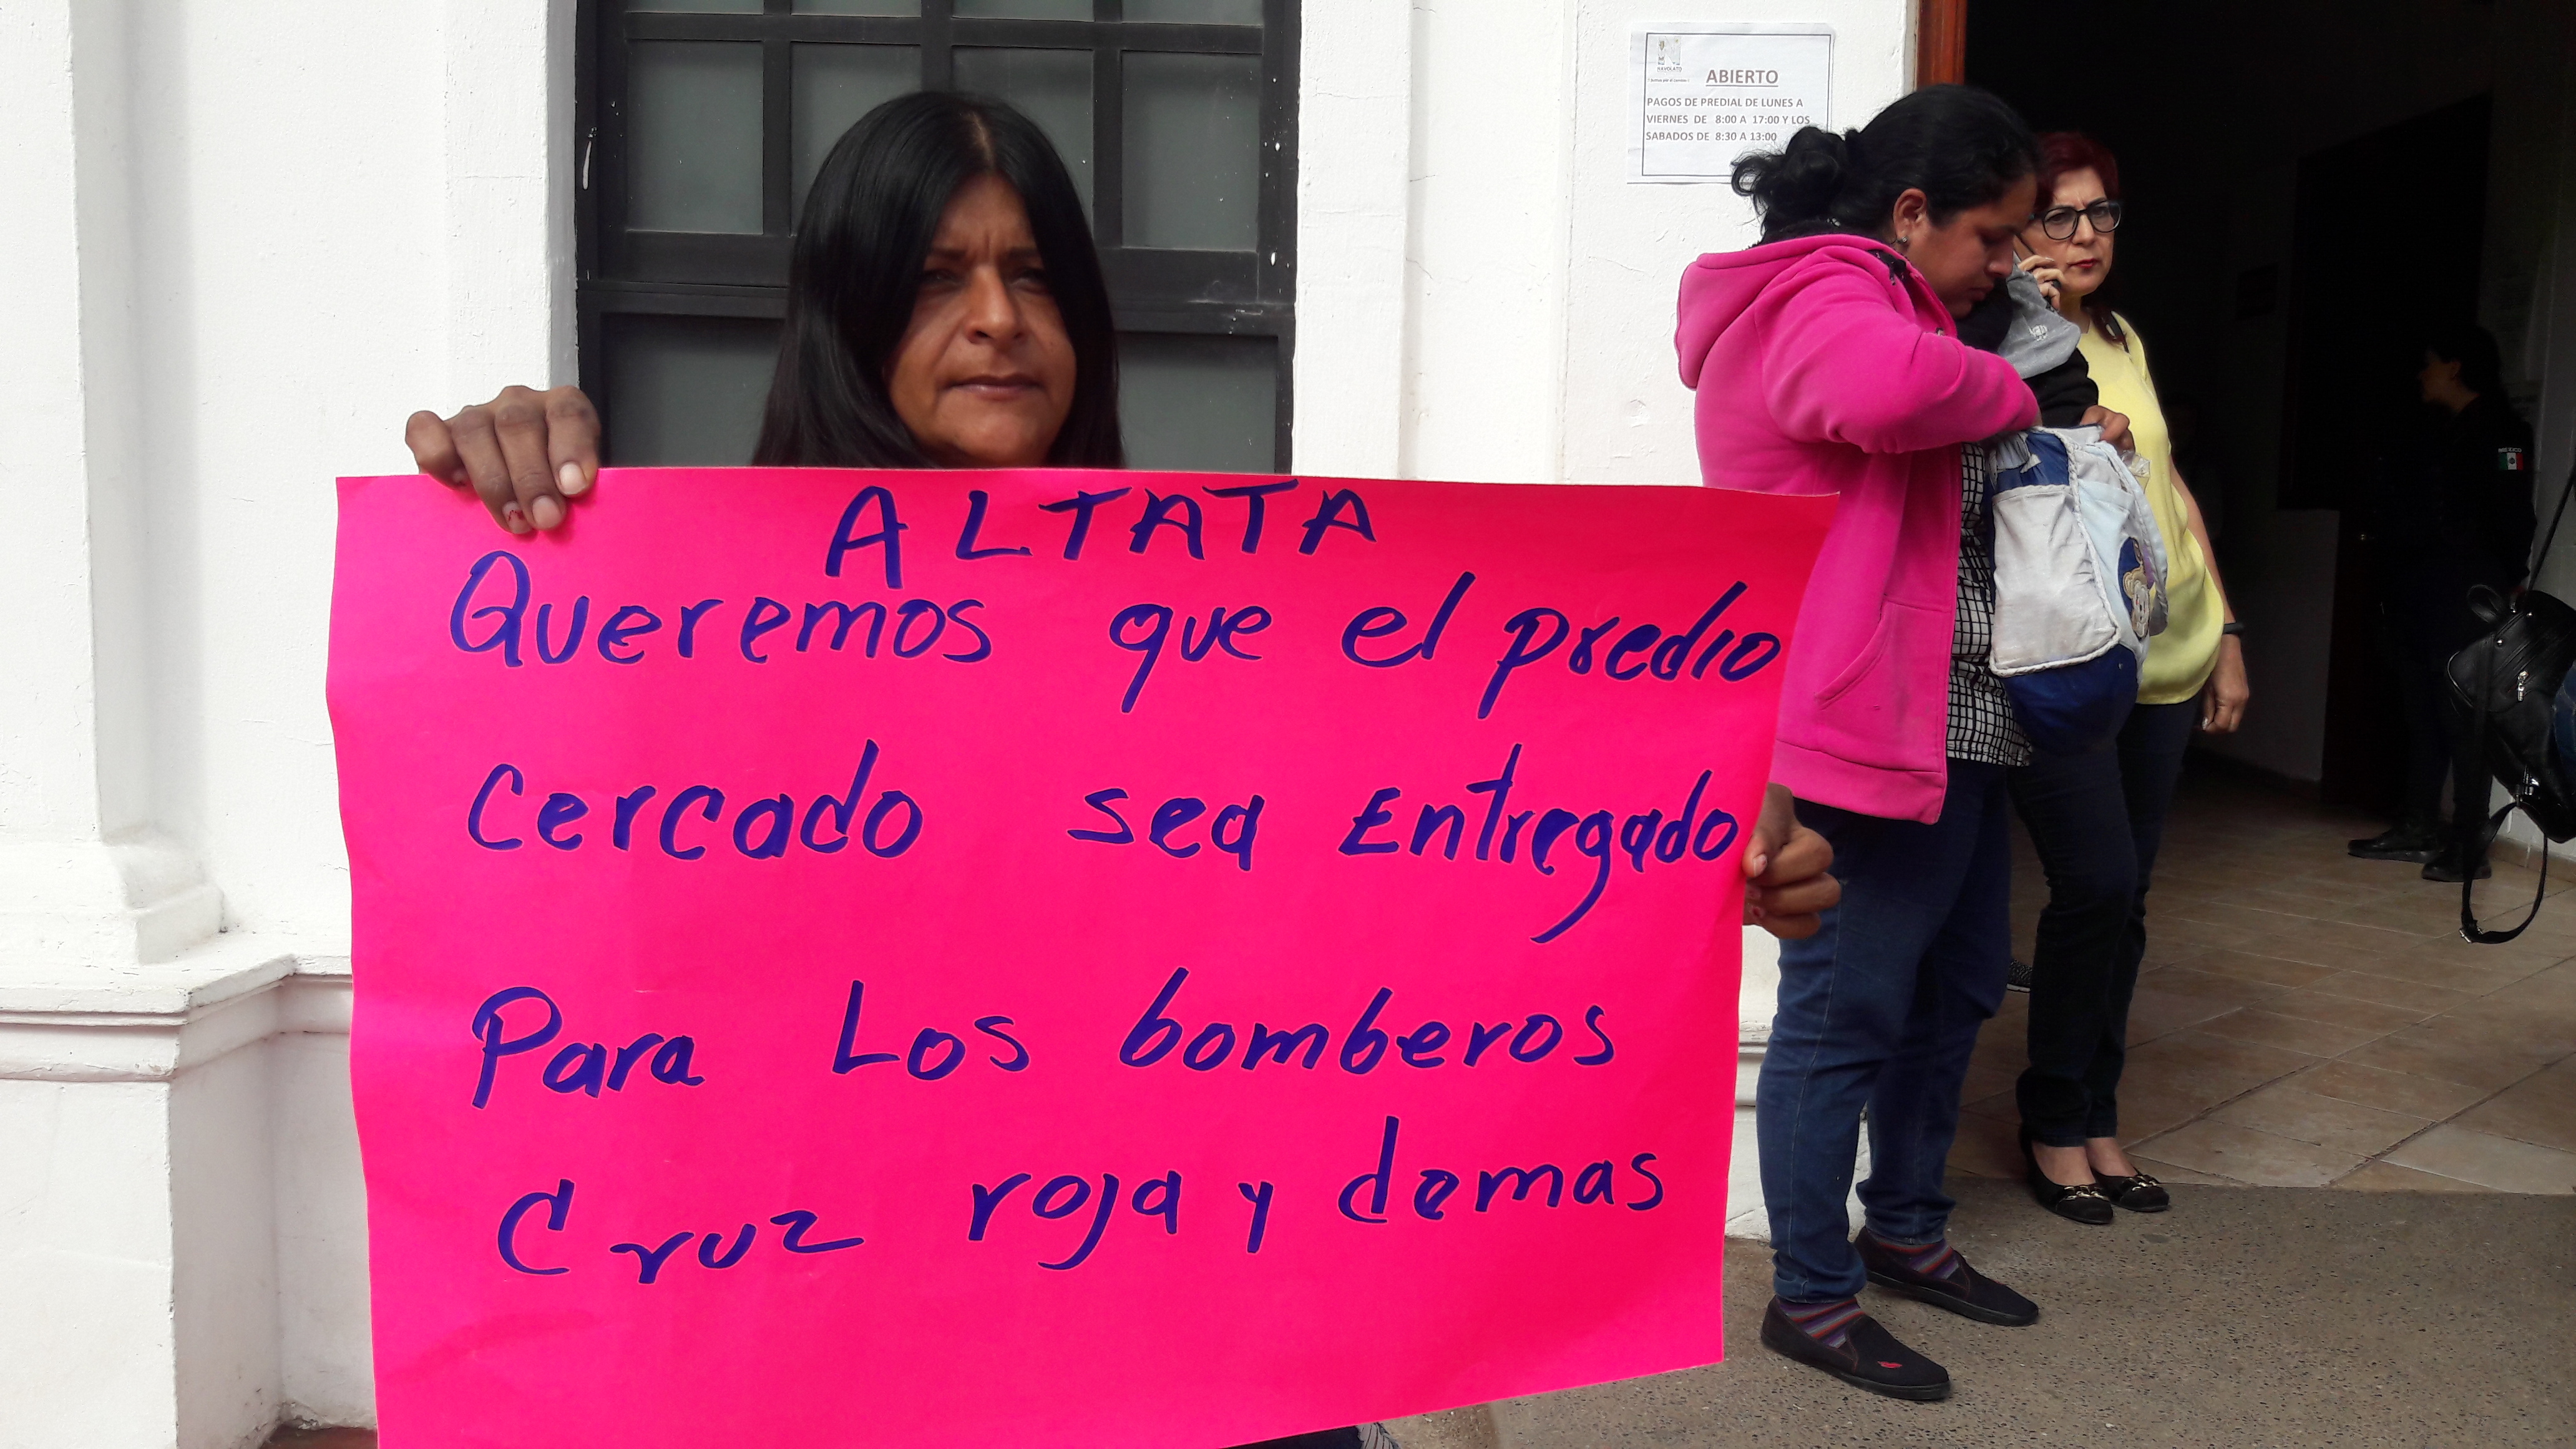 NAVOLATO
ABIERTO
PAGOS DE PREDIAL DE LUNES A
VIERNES DE 8:00 A 17:00 Y LOS
SABADOS DE 8:30 A 13:00
ALTATA
Queremos que el predio
Cercado sea Entregado
Para Los bomberos
Cruz roja y demas